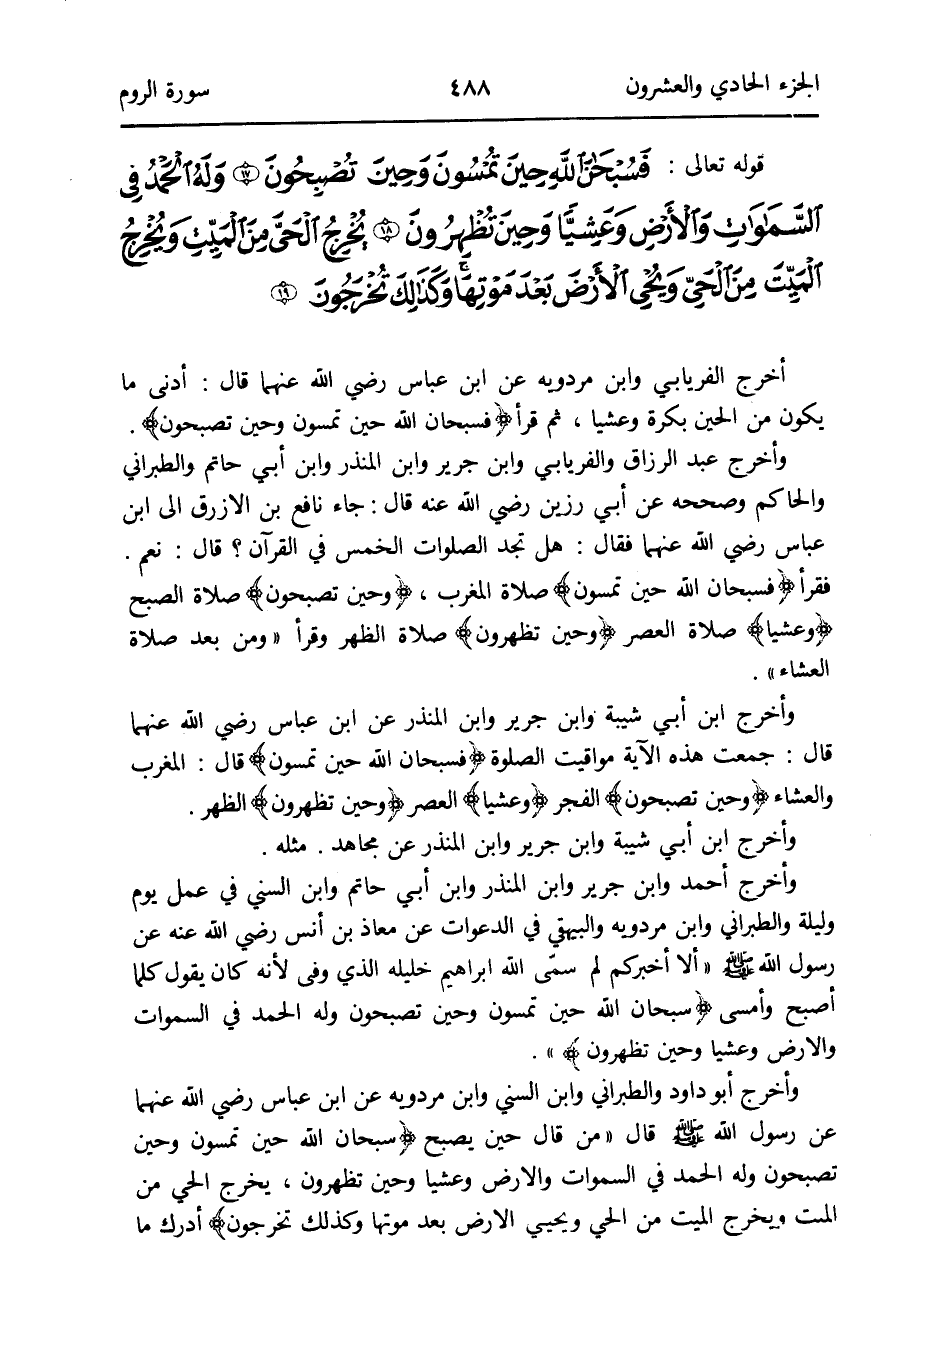 الجزء الحادي والعشرون ٤٨٨ سورة الروم
قوله تعالى : فَسُبْحَٰنَ ٱللَّهِ حِينَ تُمْسُونَ وَحِينَ تُصْبِحُونَ ١٧ وَلَهُ ٱلْحَمْدُ فِى
ٱلسَّمَٰوَٰتِ وَٱلْأَرْضِ وَعَشِيًّا وَحِينَ تُظْهِرُونَ ١٨ يُخْرِجُ ٱلْحَىَّ مِنَ ٱلْمَيِّتِ وَيُخْرِجُ
ٱلْمَيِّتَ مِنَ ٱلْحَىِّ وَيُحْىِ ٱلْأَرْضَ بَعْدَ مَوْتِهَا ۚ وَكَذَٰلِكَ تُخْرَجُونَ ١٩
أخرج الفريابي وابن مردويه عن ابن عباس رضي الله عنهما قال : أدنى ما
يكون من الحين بكرة وعشيا ، ثم قرأ ﴿فسبحان الله حين تمسون وحين تصبحون﴾ .
وأخرج عبد الرزاق والفريابي وابن جرير وابن المنذر وابن أبي حاتم والطبراني
والحاكم وصححه عن أبي رزين رضي الله عنه قال : جاء نافع بن الازرق الى ابن
عباس رضي الله عنهما فقال : هل تجد الصلوات الخمس في القرآن ؟ قال : نعم .
فقرأ ﴿فسبحان الله حين تمسون﴾ صلاة المغرب ، ﴿وحين تصبحون﴾ صلاة الصبح
﴿وعشيا﴾ صلاة العصر ﴿وحين تظهرون﴾ صلاة الظهر وقرأ « ومن بعد صلاة
العشاء » .
وأخرج ابن أبي شيبة وابن جرير وابن المنذر عن ابن عباس رضي الله عنهما
قال : جمعت هذه الآية مواقيت الصلوة ﴿فسبحان الله حين تمسون﴾ قال : المغرب
والعشاء ﴿وحين تصبحون﴾ الفجر ﴿وعشيا﴾ العصر ﴿وحين تظهرون﴾ الظهر .
وأخرج ابن أبي شيبة وابن جرير وابن المنذر عن مجاهد . مثله .
وأخرج أحمد وابن جرير وابن المنذر وابن أبي حاتم وابن السني في عمل يوم
وليلة والطبراني وابن مردويه والبيهقي في الدعوات عن معاذ بن أنس رضي الله عنه عن
رسول الله ﷺ « ألا أخبركم لم سمّى الله ابراهيم خليله الذي وفى لأنه كان يقول كلما
أصبح وأمسى ﴿سبحان الله حين تمسون وحين تصبحون وله الحمد في السموات
والارض وعشيا وحين تظهرون ﴾ » .
وأخرج أبو داود والطبراني وابن السني وابن مردويه عن ابن عباس رضي الله عنهما
عن رسول الله ﷺ قال « من قال حين يصبح ﴿سبحان الله حين تمسون وحين
تصبحون وله الحمد في السموات والارض وعشيا وحين تظهرون ، يخرج الحي من
الميت ويخرج الميت من الحي ويحيي الارض بعد موتها وكذلك تخرجون﴾ أدرك ما